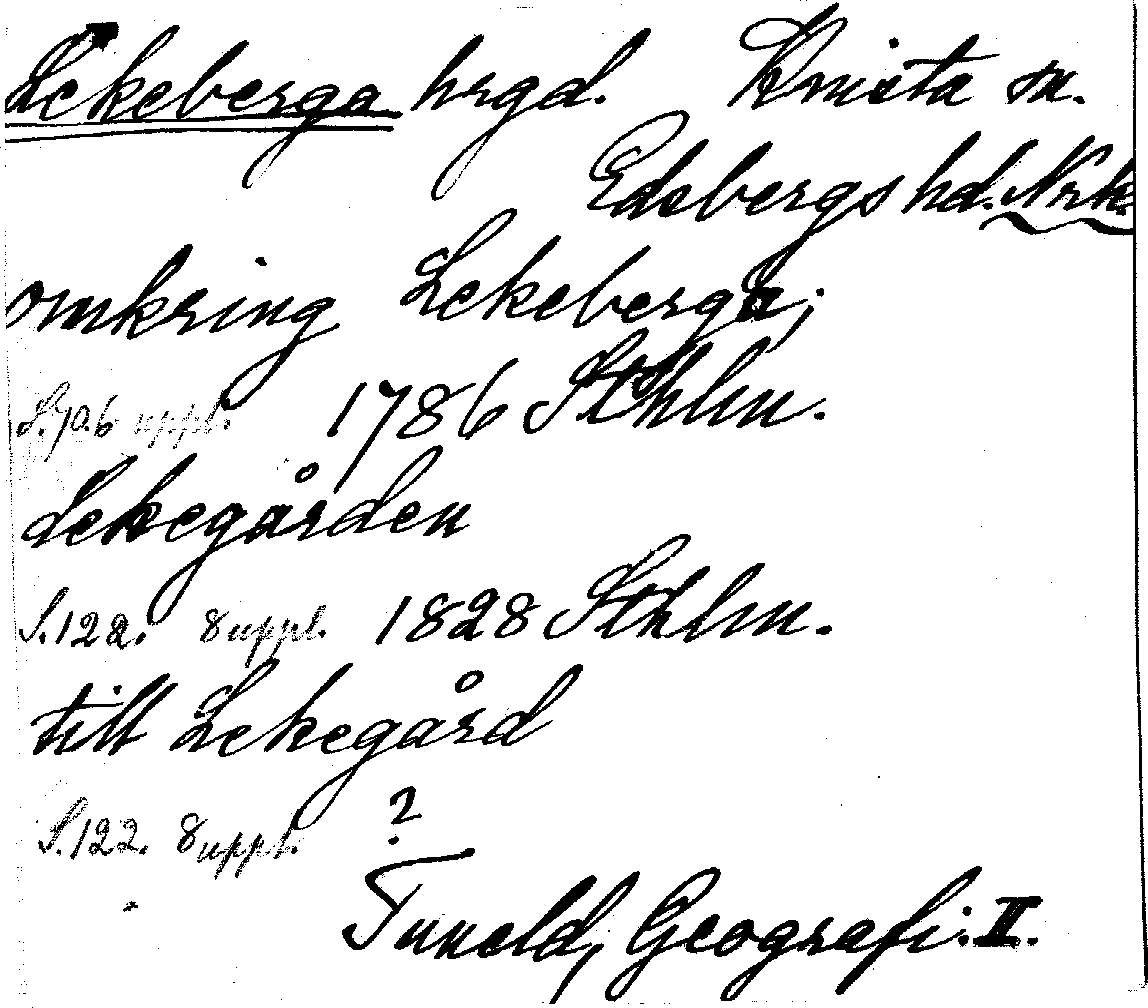 Lekeberga hrgd. Knista sn.
Edsbergs hd. Nrk.
omkring Lekeberga;
1786 Sthlm.
Lekegården
S.122. 8 uppl. 1828 Sthlm.
till Lekegård
S.122. 8 uppl. ?
Tuneld, Geografi. II.